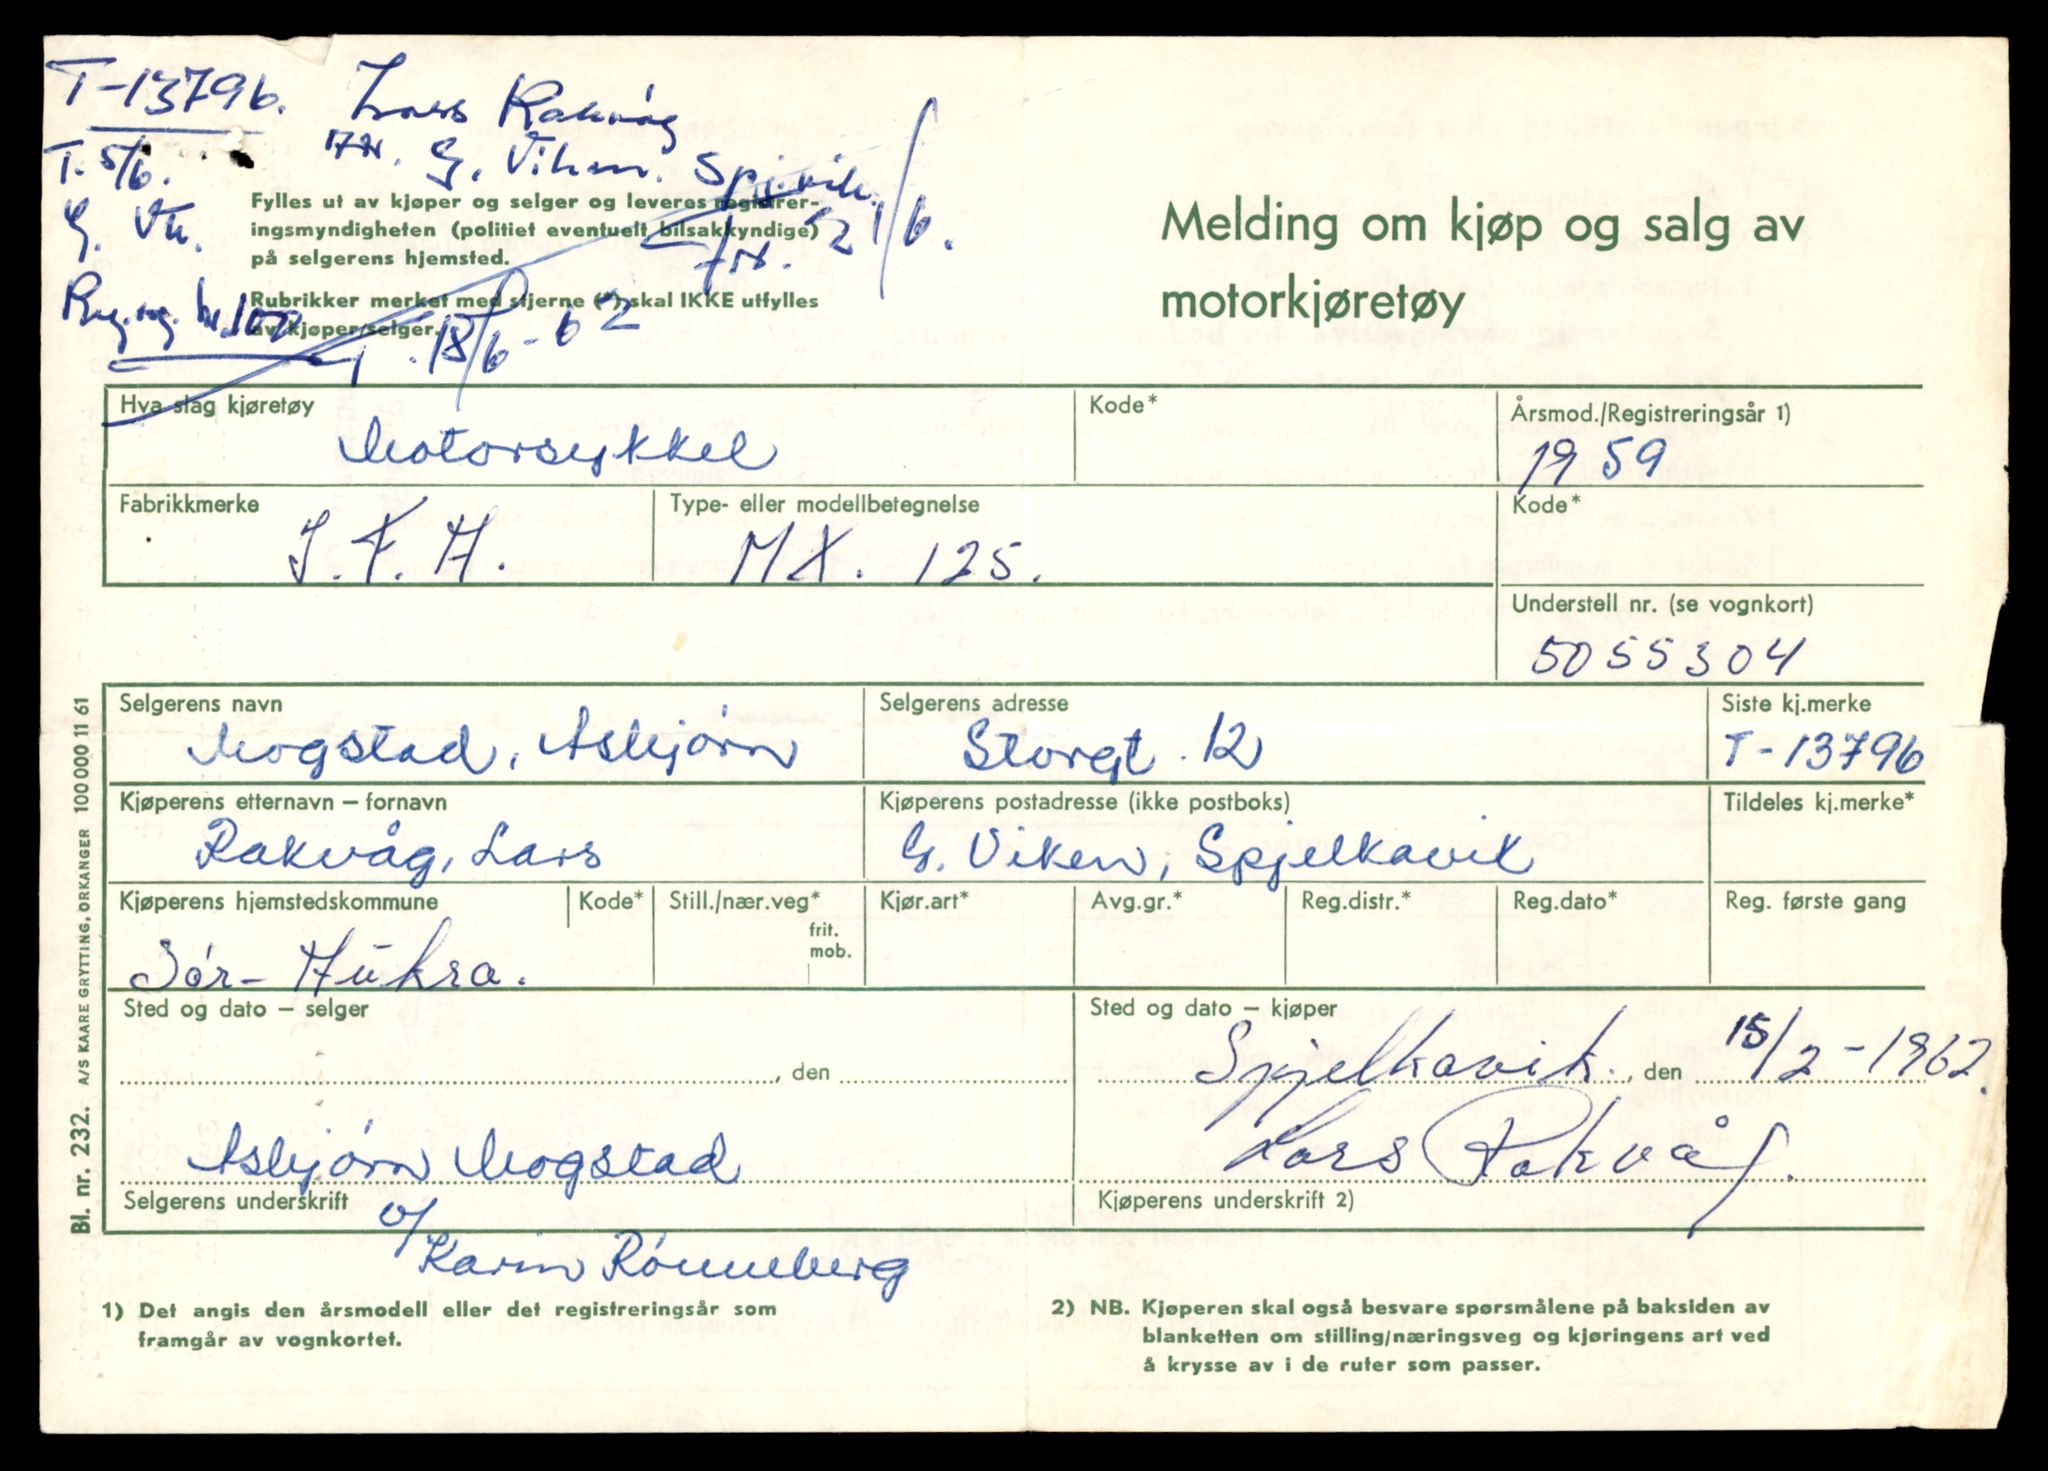 T-13796. Lars Rakvåg
T. 5/6. G. Viken. Spj.vik.
G. Vk. 21/6.
18/6-62
Fylles ut av kjøper og selger og leveres registrer-
ingsmyndigheten (politiet eventuelt bilsakkyndige)
på selgerens hjemsted.
Rubrikker merket med stjerne (*) skal IKKE utfylles
av kjøper/selger.
Melding om kjøp og salg av
motorkjøretøy
Hva slag kjøretøy Kode* Årsmod./Registreringsår 1)
Motorsykkel 1959
Fabrikkmerke Type- eller modellbetegnelse Kode*
MX. 125.
Understell nr. (se vognkort)
5055304
Selgerens navn Selgerens adresse Siste kj.merke
Mogstad, Asbjørn Storgt. 12 T-13796
Kjøperens etternavn – fornavn Kjøperens postadresse (ikke postboks) Tildeles kj.merke*
Rakvåg, Lars G. Viken, Spjelkavik
Kjøperens hjemstedskommune Kode* Still./nær.veg* Kjør.art* Avg.gr.* Reg.distr.* Reg.dato* Reg. første gang
frit.
mob.
Sør-Aukra.
Sted og dato – selger Sted og dato – kjøper
, den Spjelkavik, den 15/2-1962.
Asbjørn Mogstad Lars Rakvåg.
Selgerens underskrift Kjøperens underskrift 2)
v/
Karin Rønneberg
1) Det angis den årsmodell eller det registreringsår som
framgår av vognkortet.
2) NB. Kjøperen skal også besvare spørsmålene på baksiden av
blanketten om stilling/næringsveg og kjøringens art ved
å krysse av i de ruter som passer.
Bl. nr. 232. A/S KAARE GRYTTING, ORKANGER 100 000 11 61